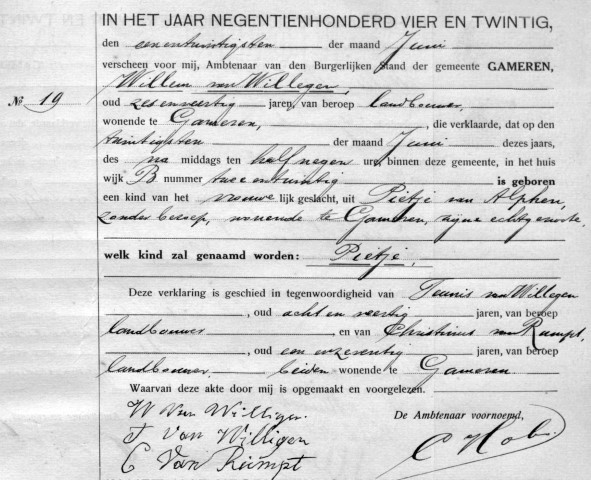 IN HET JAAR NEGENTIENHONDERD VIER EN TWINTIG,
den eenentwintigsten der maand Juni
verscheen voor mij, Ambtenaar van den Burgerlijken Stand der gemeente GAMEREN,
Willem van Willegen,
No 19
oud zesenveertig jaren, van beroep landbouwer,
wonende te Gameren, , die verklaarde, dat op den
twintigsten der maand Juni dezes jaars,
des na middags ten half negen ure, binnen deze gemeente, in het huis
wijk B nummer twee en twintig is geboren
een kind van het vrouwe lijk geslacht, uit Pietje van Alphen,
zonder beroep, wonende te Gameren, zijne echtgenoote,
welk kind zal genaamd worden: Pietje,
Deze verklaring is geschied in tegenwoordigheid van Teunis van Willegen
, oud acht en veertig jaren, van beroep
landbouwer , en van Christinus van Rumpt,
, oud een enzeventig jaren, van beroep
landbouwer, beiden wonende te Gameren.
Waarvan deze akte door mij is opgemaakt en voorgelezen.
W Van Willigen De Ambtenaar voornoemd,
T van Willigen
C Van Rumpt C Hob